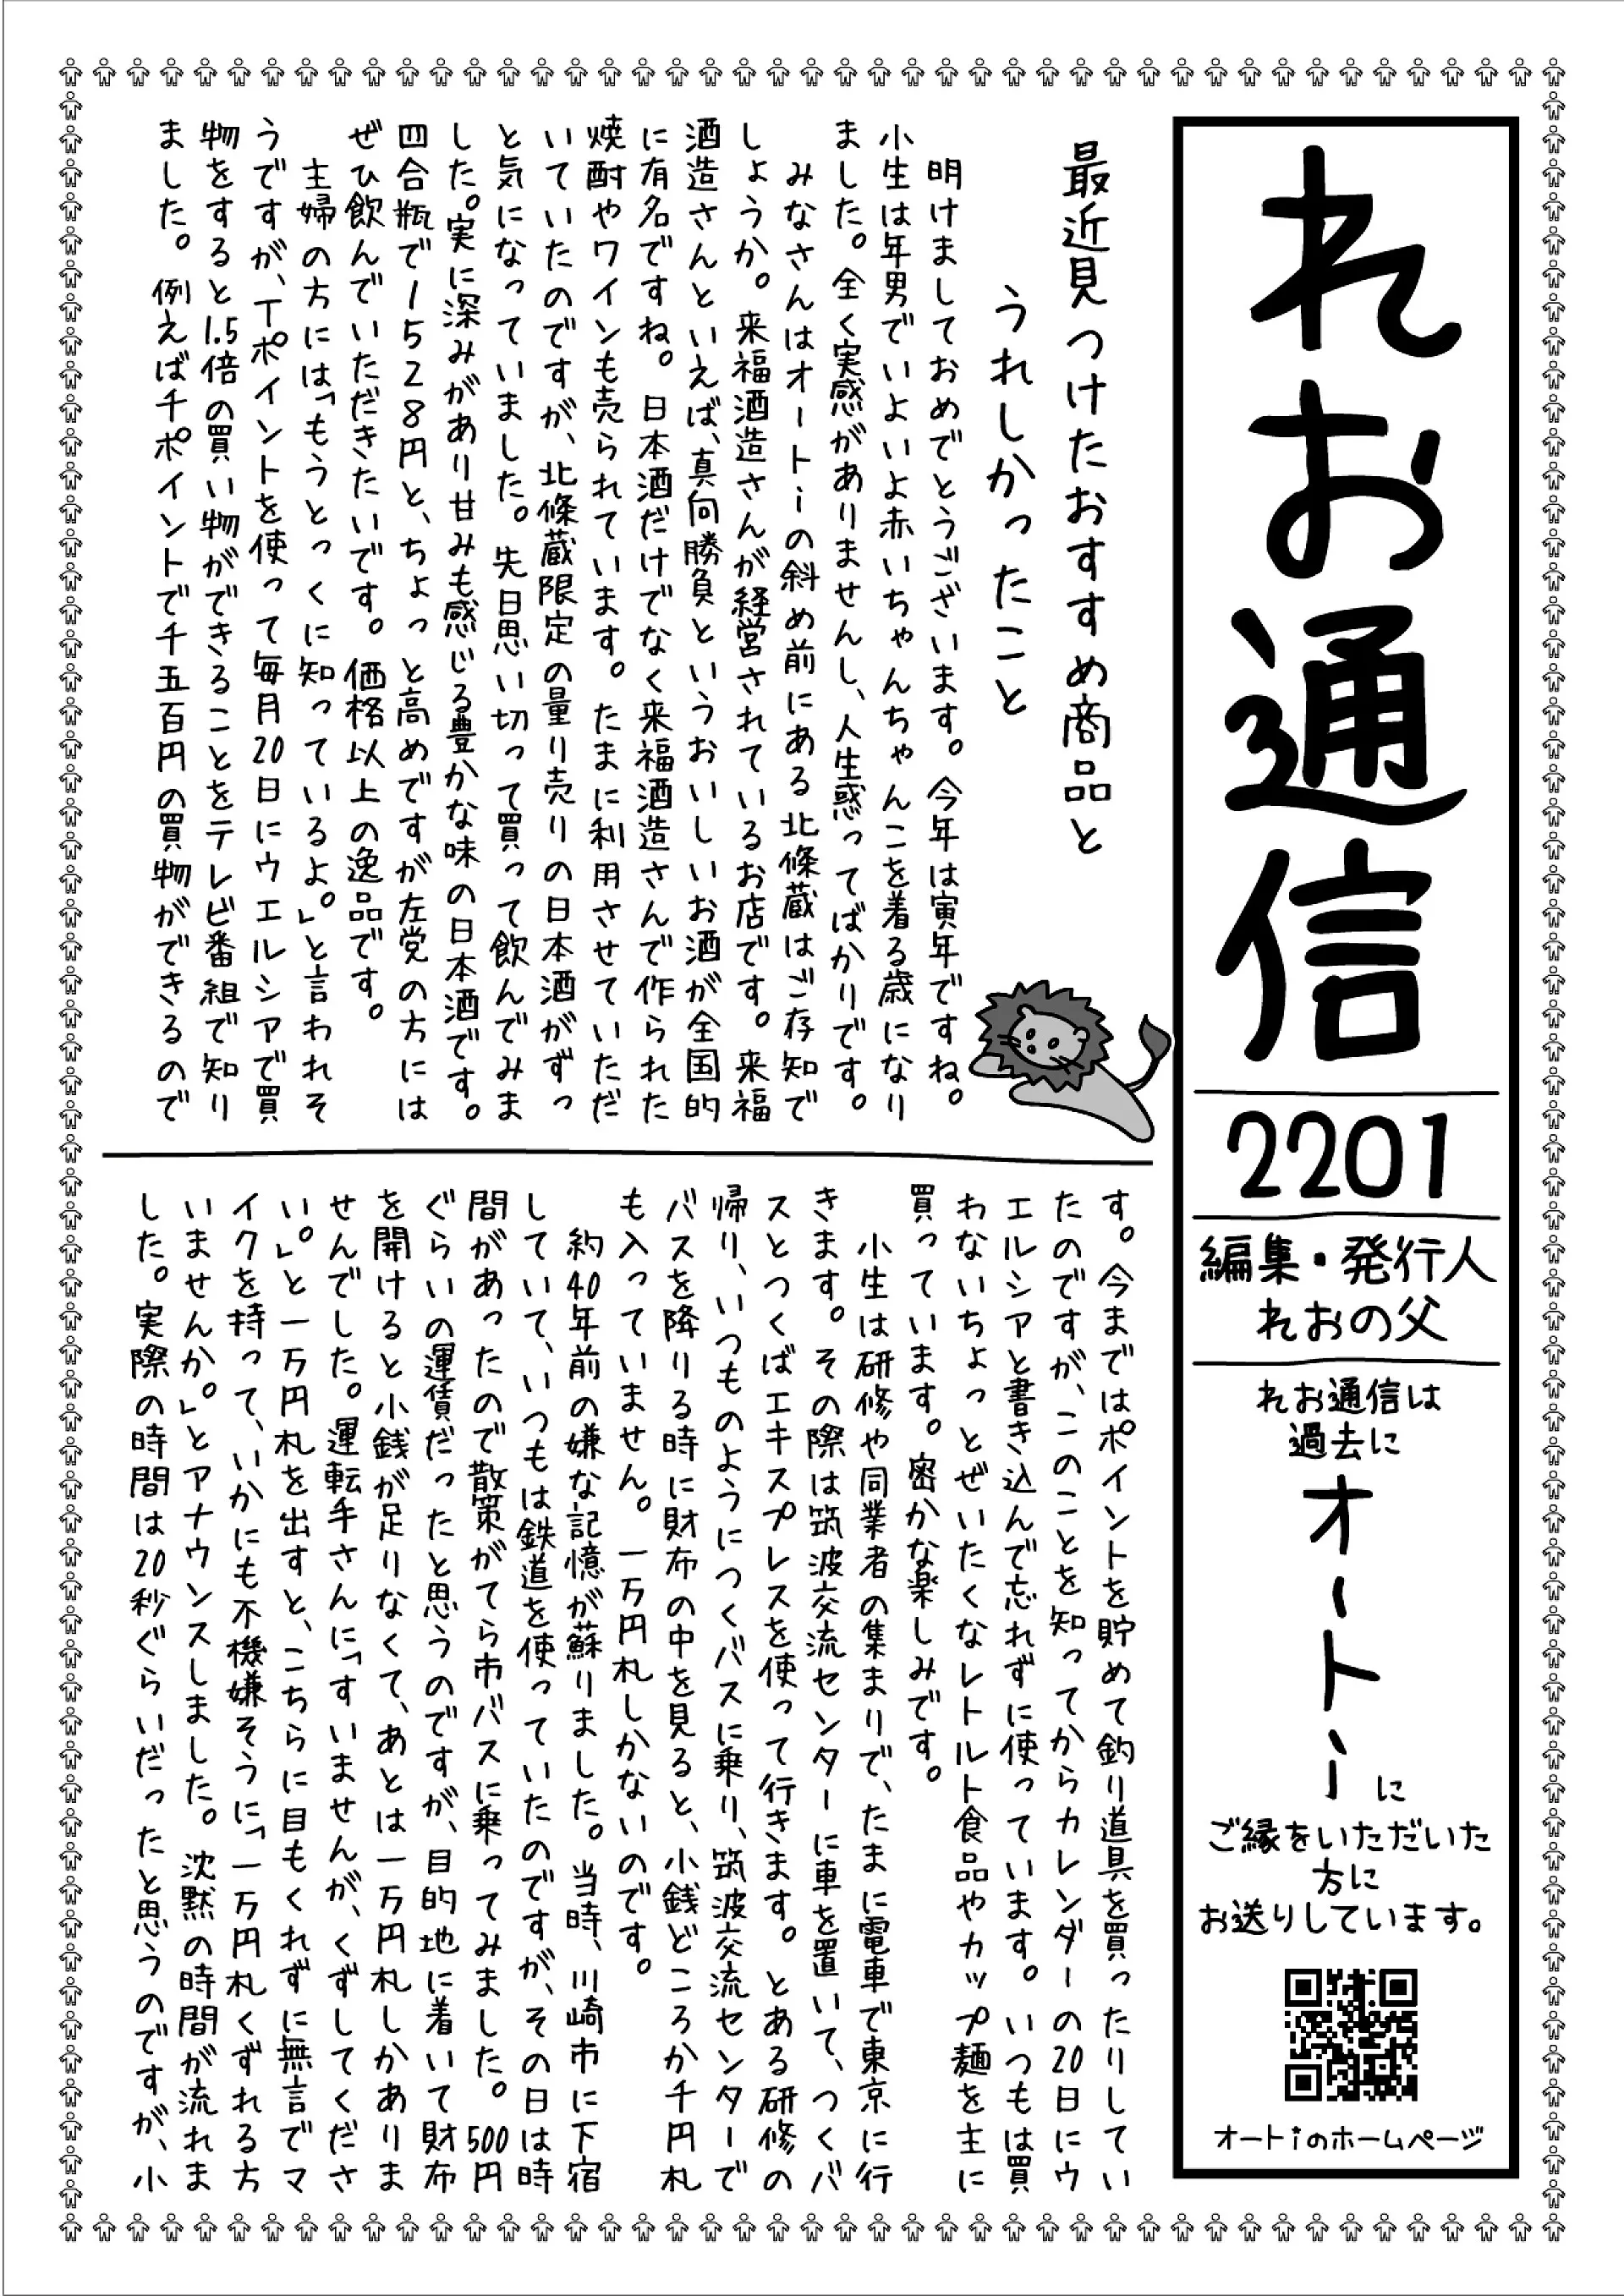 れお通信
2201
編集・発行人
れおの父
れお通信は
過去に
オートi
に
ご縁をいただいた
方に
お送りしています。
オートiのホームページ
最近見つけたおすすめ商品と
うれしかったこと
明けましておめでとうございます。今年は寅年ですね。
小生は年男でいよいよ赤いちゃんちゃんこを着る歳になり
ました。全く実感がありませんし、人生惑ってばかりです。
みなさんはオートiの斜め前にある北條蔵はご存知で
しょうか。来福酒造さんが経営されているお店です。来福
酒造さんといえば、真向勝負というおいしいお酒が全国的
に有名ですね。日本酒だけでなく来福酒造さんで作られた
焼酎やワインも売られています。たまに利用させていただ
いていたのですが、北條蔵限定の量り売りの日本酒がずっ
と気になっていました。先日思い切って買って飲んでみま
した。実に深みがあり甘みも感じる豊かな味の日本酒です。
四合瓶で1528円と、ちょっと高めですが左党の方には
ぜひ飲んでいただきたいです。価格以上の逸品です。
主婦の方には「もうとっくに知っているよ。」と言われそ
うですが、Tポイントを使って毎月20日にウエルシアで買
物をすると1.5倍の買い物ができることをテレビ番組で知り
ました。例えば千ポイントで千五百円の買物ができるので
す。今まではポイントを貯めて釣り道具を買ったりしてい
たのですが、このことを知ってからカレンダーの20日にウ
エルシアと書き込んで忘れずに使っています。いつもは買
わないちょっとぜいたくなレトルト食品やカップ麺を主に
買っています。密かな楽しみです。
小生は研修や同業者の集まりで、たまに電車で東京に行
きます。その際は筑波交流センターに車を置いて、つくバ
スとつくばエキスプレスを使って行きます。とある研修の
帰り、いつものようにつくバスに乗り、筑波交流センターで
バスを降りる時に財布の中を見ると、小銭どころか千円札
も入っていません。一万円札しかないのです。
約40年前の嫌な記憶が蘇りました。当時、川崎市に下宿
していて、いつもは鉄道を使っていたのですが、その日は時
間があったので散策がてら市バスに乗ってみました。500円
ぐらいの運賃だったと思うのですが、目的地に着いて財布
を開けると小銭が足りなくて、あとは一万円札しかありま
せんでした。運転手さんに「すいませんが、くずしてくださ
い。」と一万円札を出すと、こちらに目もくれずに無言でマ
イクを持って、いかにも不機嫌そうに「一万円札くずれる方
いませんか。」とアナウンスしました。沈黙の時間が流れま
した。実際の時間は20秒ぐらいだったと思うのですが、小